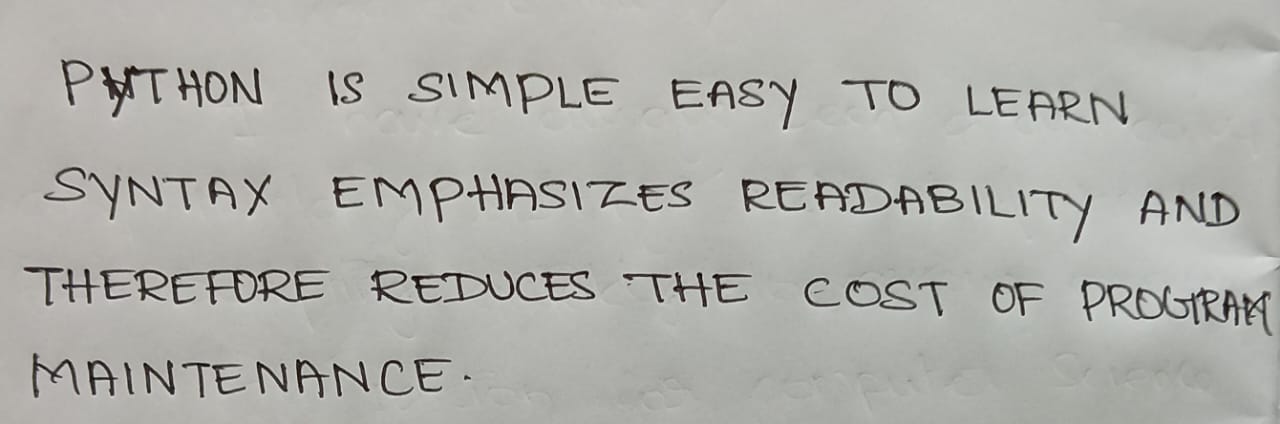 PYTHON IS SIMPLE EASY TO LEARN
SYNTAX EMPHASIZES READABILITY AND
THEREFORE REDUCES THE COST OF PROGRAM
MAINTENANCE.